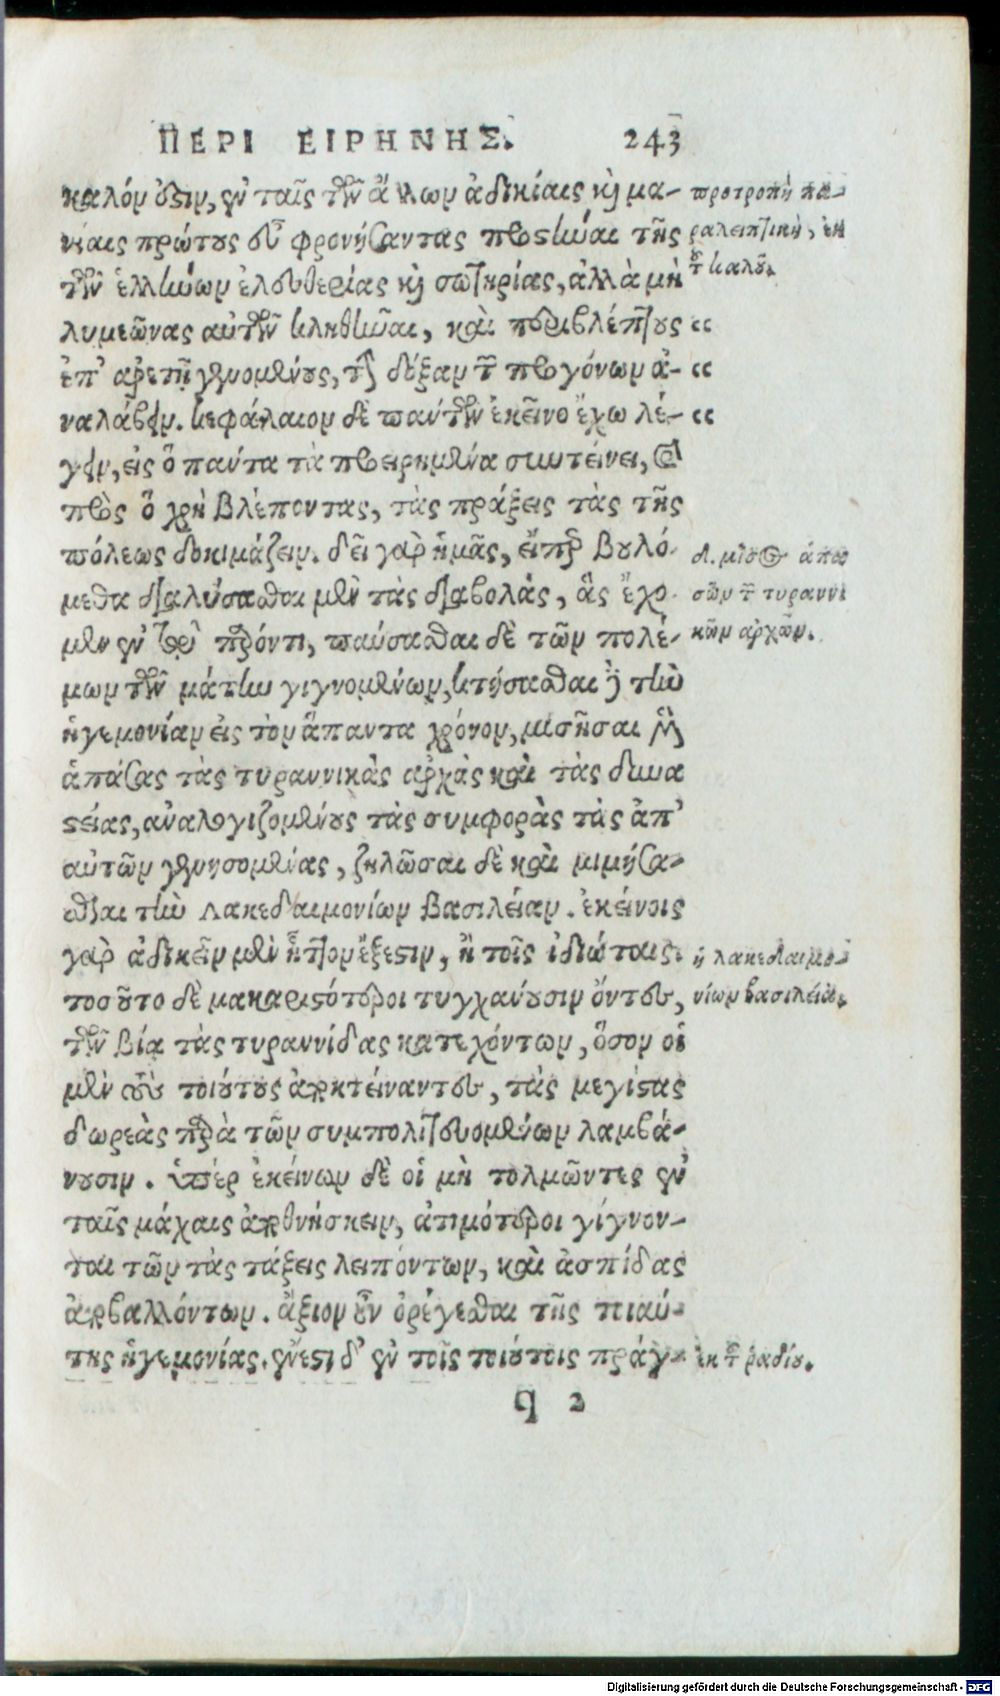 ΠΕΡΙ ΕΙΡΗΝΗΣ. 243
καλόν ὅδιν, ἐν ταῖς τῶν ἄλλων ἀδικίαις καὶ μα-
νίαις πρώτους εὖ φρονήσαντας προστῆναι τῆς
τῶν ἑλλήνων ἐλευθερίας καὶ σωτηρίας, ἀλλὰ μὴ
λυμεῶνας αὐτῶν κληθῆναι, καὶ περιβλέπτους
ἐπ' ἀρετῇ γενομένους, τὴν δόξαν τῶν προγόνων ἀ-
ναλαβεῖν. κεφάλαιον δὲ πάντων ἐκεῖνο ἔχω λέ-
γειν, εἰς ὃ πάντα τὰ προειρημένα συντείνει, καὶ
πρὸς ὃ χρὴ βλέποντας, τὰς πράξεις τὰς τῆς
πόλεως δοκιμάζειν. δεῖ γὰρ ἡμᾶς, εἴπερ βουλό-
μεθα διαλύσασθαι μὲν τὰς διαβολὰς, ἃς ἔχο-
μεν ἐν τῷ παρόντι, παύσασθαι δὲ τῶν πολέ-
μων τῶν μάτην γιγνομένων, κτήσασθαι δὲ τὴν
ἡγεμονίαν εἰς τὸν ἅπαντα χρόνον, μισῆσαι μὲν
ἁπάσας τὰς τυραννικὰς ἀρχὰς καὶ τὰς δυνα
στείας, ἀναλογιζομένους τὰς συμφορὰς τὰς ἀπ'
αὐτῶν γενησομένας, ζηλῶσαι δὲ καὶ μιμήσα-
σθαι τὴν Λακεδαιμονίων βασιλείαν. ἐκείνοις
γὰρ ἀδικεῖν μὲν ἧττον ἔξεστιν, ἢ τοῖς ἰδιώταις:
τοσοῦτο δὲ μακαριστότεροι τυγχάνουσιν ὄντες,
τῶν βίᾳ τὰς τυραννίδας κατεχόντων, ὅσον οἱ
μὲν τοὺς τοιούτους ἀποκτείναντες, τὰς μεγίστας
δωρεὰς παρὰ τῶν συμπολιτευομένων λαμβά-
νουσιν. ὑπὲρ ἐκείνων δὲ οἱ μὴ τολμῶντες ἐν
ταῖς μάχαις ἀποθνήσκειν, ἀτιμότεροι γίγνον-
ται τῶν τὰς τάξεις λειπόντων, καὶ ἀσπίδας
ἀποβαλλόντων. ἄξιον οὖν ὀρέγεσθαι τῆς τοιαύ-
της ἡγεμονίας. ἔνεστι δ' ἐν τοῖς τοιούτοις πράγ-
q 2
προτροπὴ πα-
ραλειπτικὴ, ἐκ
τοῦ καλοῦ.
“
“
“
δ. μῖσος ἁπα
σῶν τῶν τυραννι
κῶν ἀρχῶν.
ἡ λακεδαιμο-
νίων βασιλεία.
ἐκ τοῦ ῥαδίου.
Digitalisierung gefördert durch die Deutsche Forschungsgemeinschaft - DFG